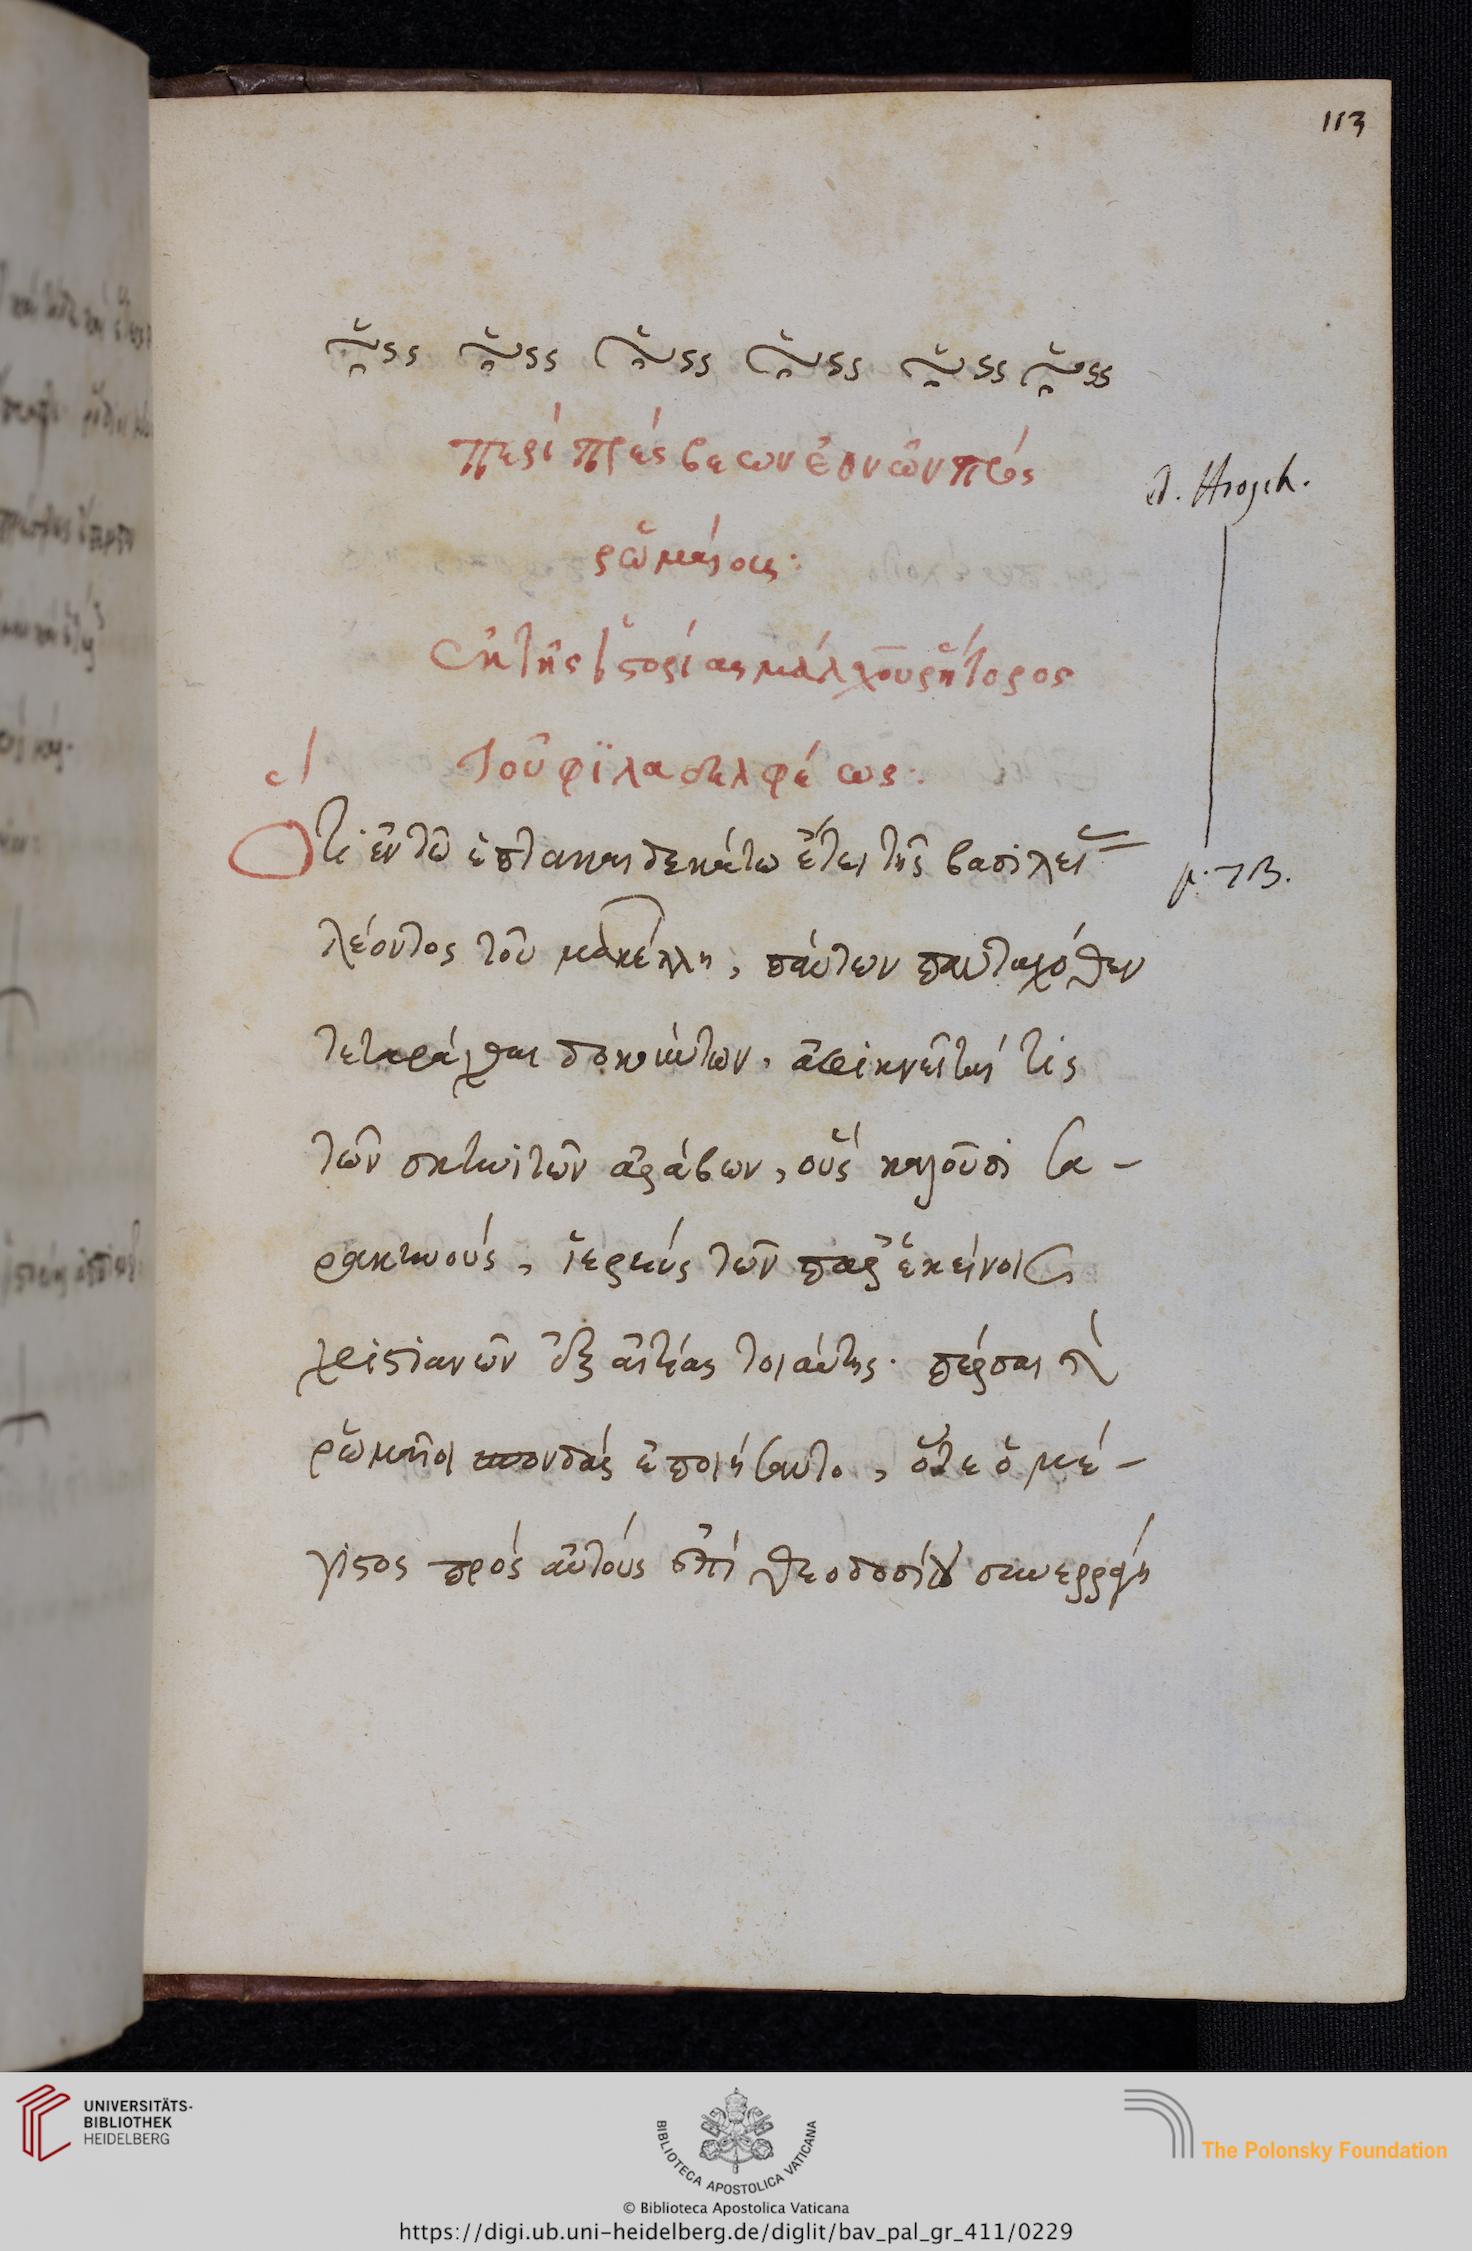 113
περὶ πρέσβεων ἐθνῶν πρὸς
ῥωμαίους:
ἐκ τῆς ἱστορίας μάλχου ῥήτορος
τοῦ φιλαδελφέως:
ed. Hoesch.
Ὅτι ἐν τῷ ἑπτακαιδεκάτω ἔτει τῆς βασιλεί
λέοντος τοῦ μακέλλη, πάντων πανταχόθεν
τεταράχθαι δοκούντων, ἀφικνεῖταί τις
τῶν σκηνιτῶν ἀράβων, οὓς καλοῦσι σα-
ρακηνούς, ἱερεὺς τῶν παρ' ἐκείνοις
χριστιανῶν ἐξ αἰτίας τοιαύτης. πέρσαι καὶ
ῥωμαῖοι σπονδὰς ἐποιήσαντο, ὅτε ὁ μέ-
γιστος πρὸς αὐτοὺς ἐπὶ θεοδοσίου συνερράγη
UNIVERSITÄTS-
BIBLIOTHEK
HEIDELBERG
BIBLIOTECA APOSTOLICA VATICANA
© Biblioteca Apostolica Vaticana
The Polonsky Foundation
https://digi.ub.uni-heidelberg.de/diglit/bav_pal_gr_411/0229